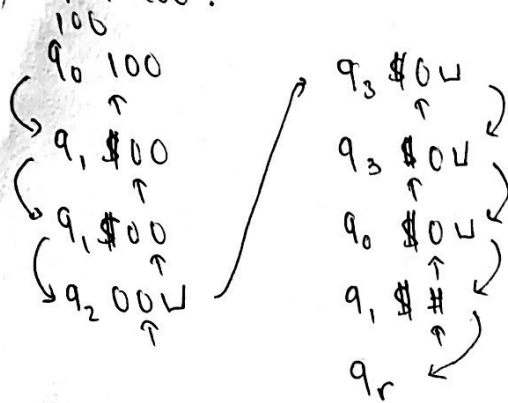 100
q0 100
↑
q1 $00
↑
q1 $00
↑
q2 00⊔
↑
q3 $0⊔
↑
q3 $0⊔
↑
q0 $0⊔
↑
q1 $ #
↑
qr